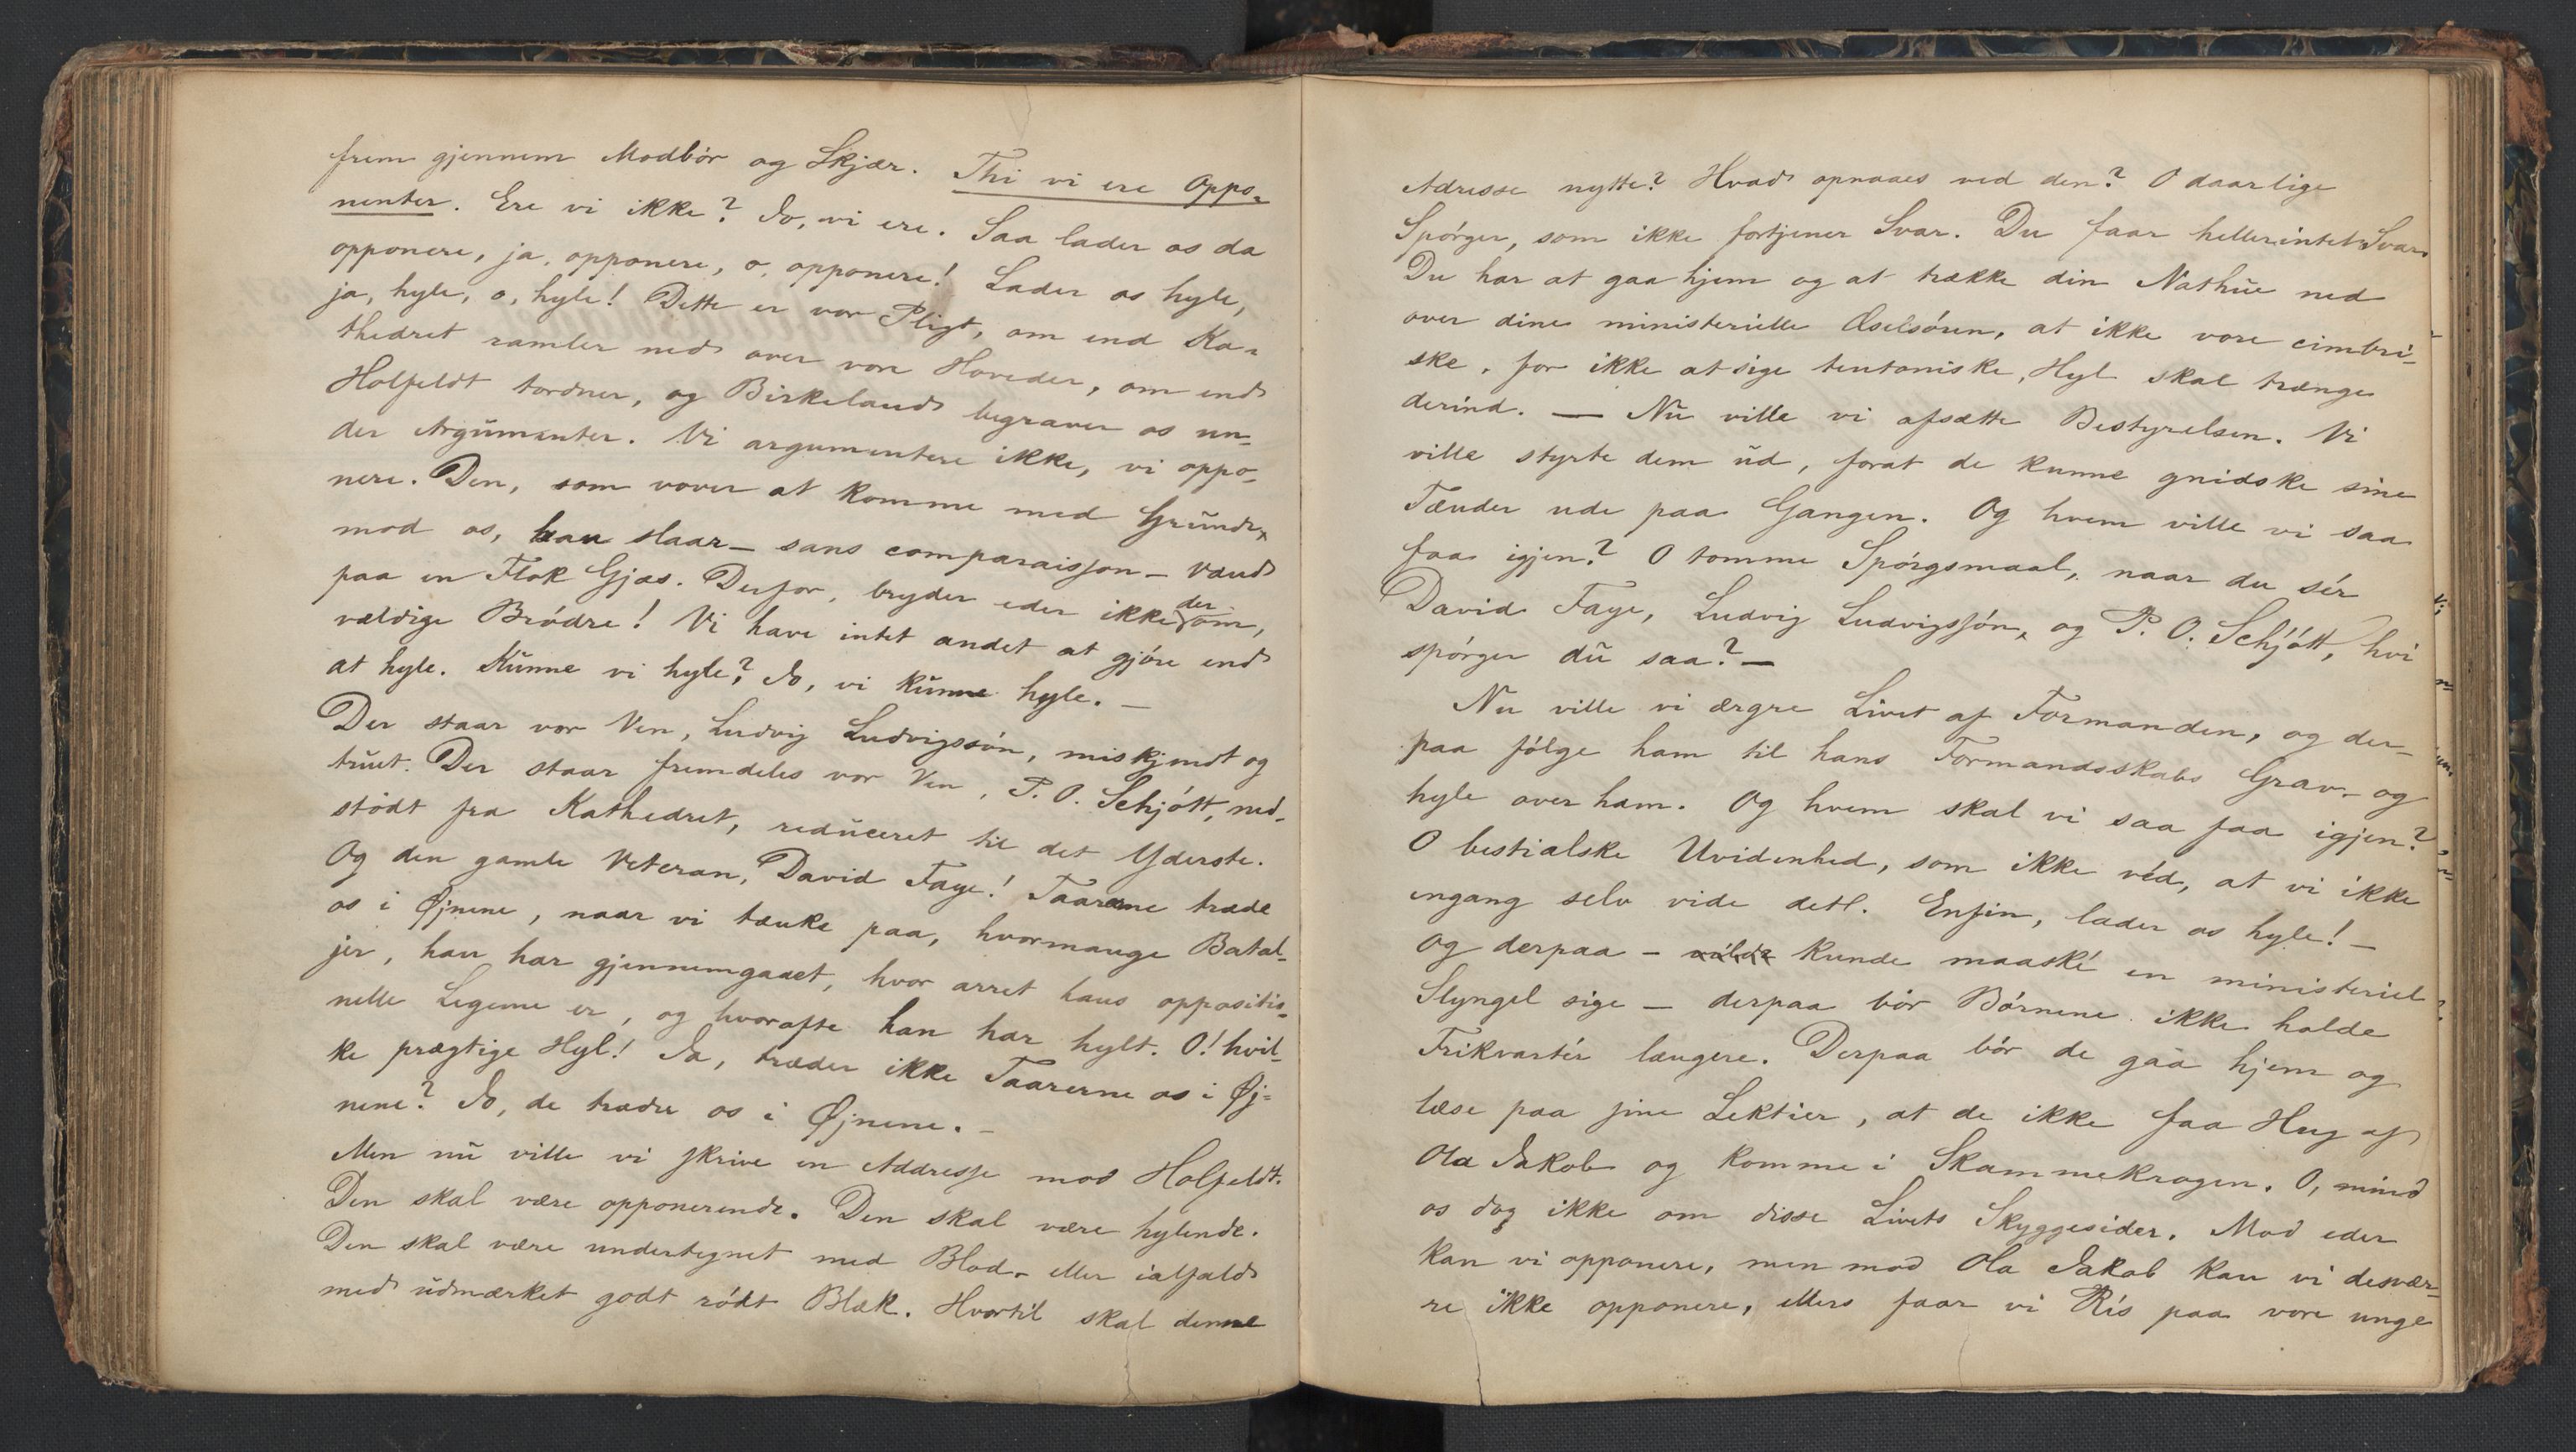 frem gjennem Modbör og Skjær. Thi vi ere Oppo-
nenter. Ere vi ikke? Jo, vi ere. Saa lader os da
opponere, ja, opponere, o, opponere! Lader os hyle,
ja, hyle, o, hyle! Dette er vor Pligt, om end Ka-
thedret ramler ned over vore Hoveder, om end
Holfeldt tordner, og Birkeland begraver os un-
der Argumenter. Vi argumentere ikke, vi oppo-
nere. Den, som vover at komme med Grunde
mod os, han slaar - sans comparaison - Vand
paa en Flok Gjæs. Derfor, bryder eder ikke der om,
vældige Brödre! Vi have intet andet at gjöre end
at hyle. Kunne vi hyle? Jo, vi kunne hyle. -
Der staar vor Ven, Ludvig Ludvigssön, miskjendt og
truet. Der staar fremdeles vor Ven, P. O. Schjött, ned-
stödt fra Kathedret, reduceret til det Yderste.
Og den gamle Veteran, David Faye! Taarerne træde
os i Øjnene, naar vi tænke paa, hvormange Batal-
jer, han har gjennemgaaet, hvor arret hans oppositio-
nelle Legeme er, og hvorofte han har hylt. O! hvil-
ke prægtige Hyl! Ja, træder ikke Taarerne os i Øj-
nene? Jo, de træde os i Øjnene. -
Men nu ville vi skrive en Addresse mod Holfeldt.
Den skal være opponerende. Den skal være hylende.
Den skal være undertegnet med Blod - eller ialfald
med udmærket godt rödt Blæk. Hvortil skal denne
Adresse nytte? Hvad opnaaes ved den? O daarlige
Spörger, som ikke fortjener Svar. Du faar heller intet Svar.
Du har at gaa hjem og at trække din Nathue ned
over dine ministerielle Æselsören, at ikke vore cimbri-
ske, for ikke at sige teutoniske, Hyl skal trænge
derind. — Nu ville vi afsætte Bestyrelsen. Vi
ville styrte dem ud, forat de kunne gnidske sine
Tænder ude paa Gangen. Og hvem ville vi saa
faa igjen? O tomme Spörgsmaal, naar du sér
David Faye, Ludvig Ludvigssön, og P. O. Schjött, hvi
spörger du saa? —
Nu ville vi ærgre Livet af Formanden, og der-
paa fölge ham til hans Formandsskabs Grav - og
hyle over ham. Og hvem skal vi saa faa igjen?
O bestialske Uvidenhed, som ikke véd, at vi ikke
engang selv vide det. Enfin, lader os hyle! -
Og derpaa - vilde kunde maaské en ministeriel
Slyngel sige - derpaa bör Börnene ikke holde
Frikvartér længere. Derpaa bör de gaa hjem og
læse paa sine Lektier, at de ikke faa Hug af
Ola Jakob og komme i Skammekrogen. O, mind
os dog ikke om disse Livets Skyggesider. Mod eder
kan vi opponere, men mod Ola Jakob kan vi desvær-
re ikke opponere, ellers faar vi Ris paa vore unge